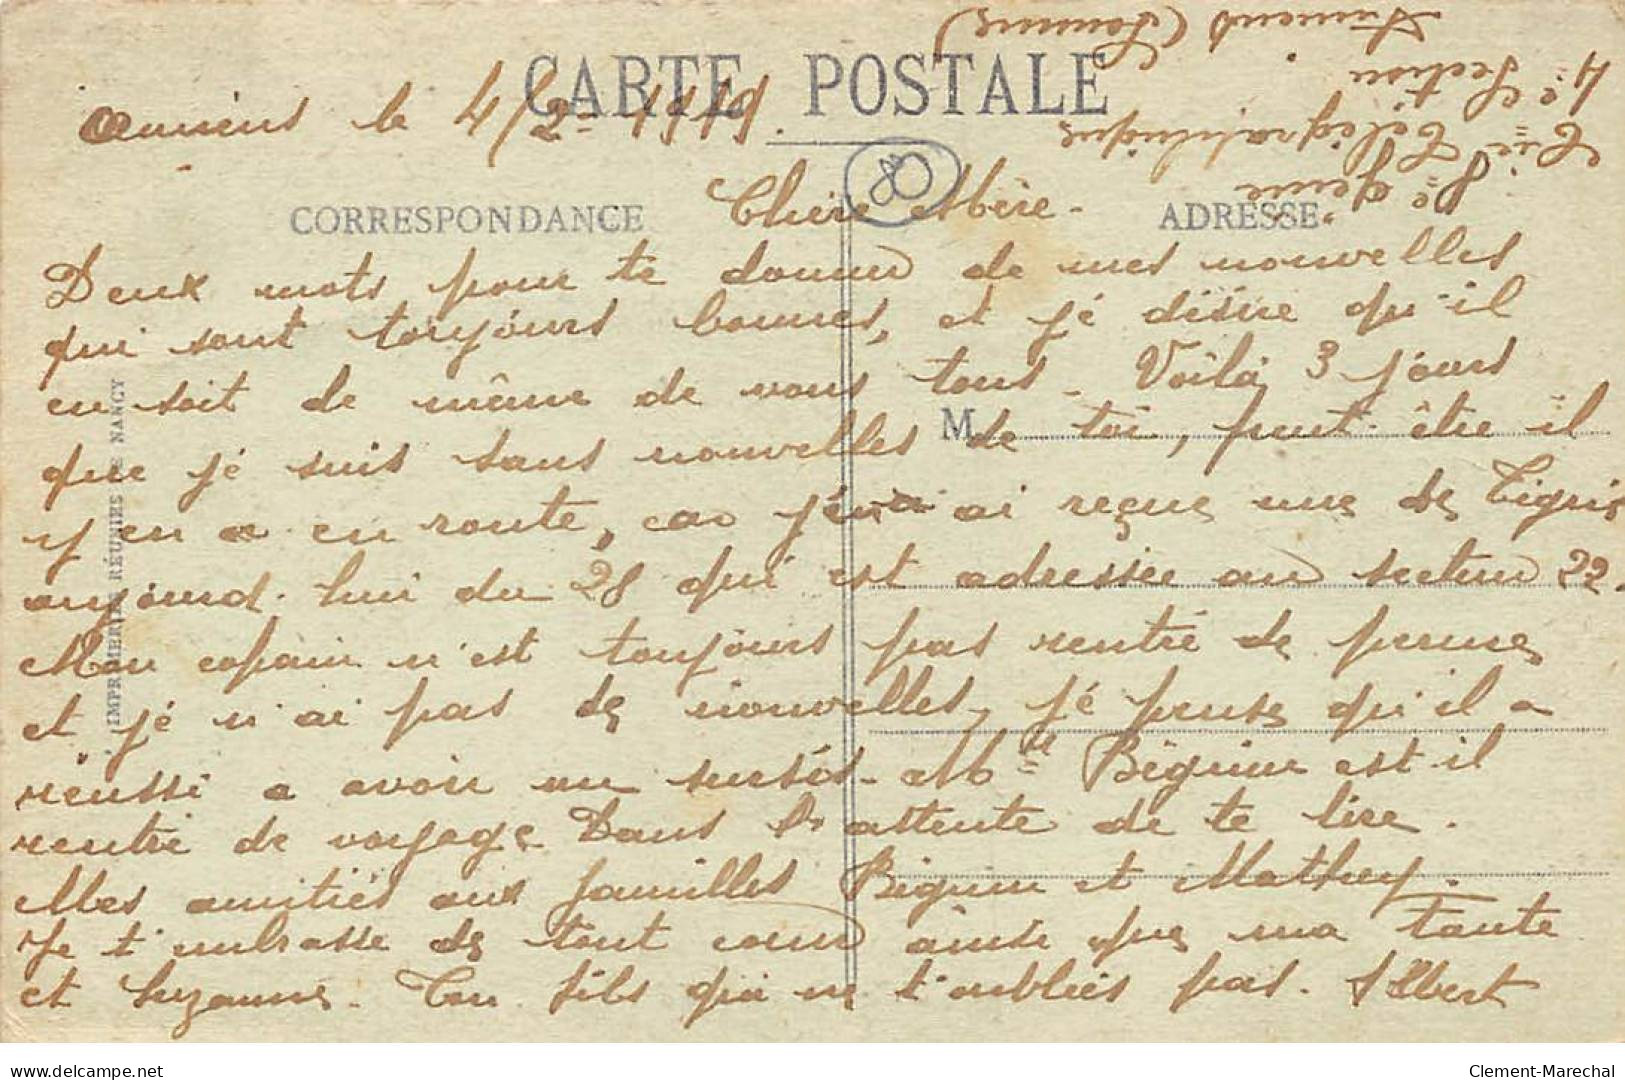 CARTE POSTALE
Amiens le 4/2-1919.
80
Chère Mère-
CORRESPONDANCE
ADRESSE
Deux mots pour te donner de mes nouvelles
qui sont toujours bonnes, et je désire qu'il
en soit de même de vous tous- Voilà 3 jours
M
que je suis sans nouvelles de toi, peut-être il
y en a en route, car j'en ai reçue une de Tignis
aujourd-hui du 28 qui est adressée au secteur 22.
Mon copain n'est toujours pas rentré de perme,
et jé n'ai pas de nouvelles, jé pense qu'il a
réussi a avoir un sursis- Mlle Béguin est-il
rentré de voyage Dans l'attente de te lire.
Mes amitiés aux familles Béguin et Mathey.
Je t'embrasse de tout cœur ainsi que ma tante
et Suzanne- Ton fils qui ne t'oublies pas- Albert
8e Génie
Cie Télégraphique
4e Section
Amiens (Somme)
IMPRIMERIES RÉUNIES DE NANCY
delcampe.net
Clement-Marechal